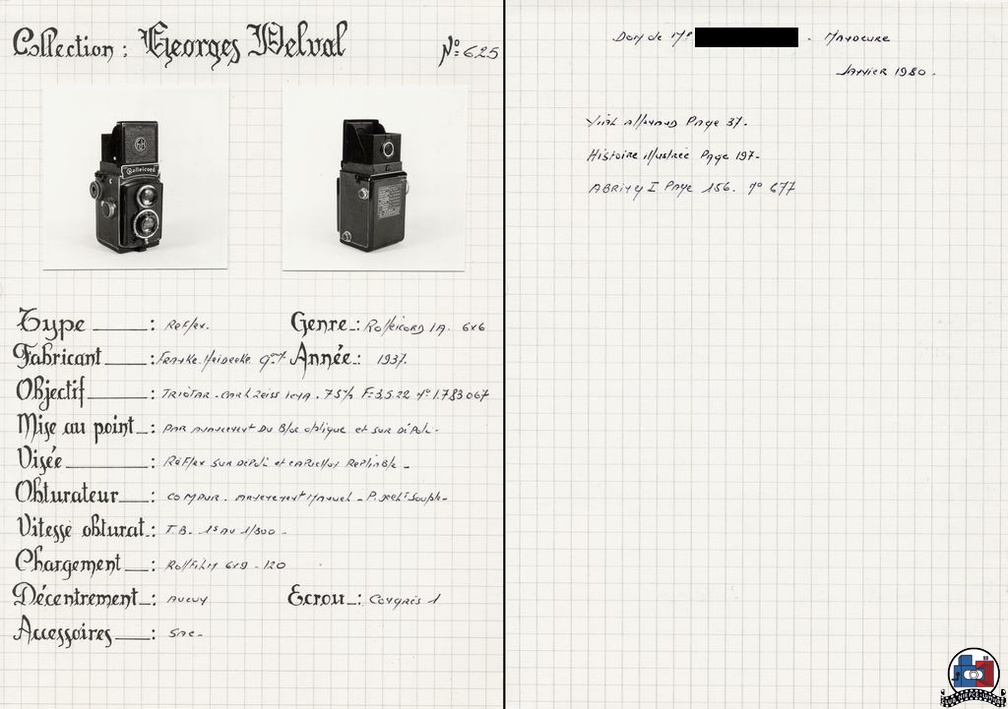 Collection : Georges Delval
N°: 625
Type : Reflex.
Genre : Rolleicord IA. 6x6
Fabricant : Franke. Heidecke
Année : 1937.
Objectif : Triotar - Carl Zeiss Iena . 75 F: 3,5.22 n° 1.783067
Mise au point : par avancement du Bloc optique et sur Dépoli -
Visée : Réflex sur Dépoli et capuchon Repliable -
Obturateur : COMPUR . armement Manuel - P. souple -
Vitesse obturat. : T.B. 1s au 1/300 -
Chargement : Rollfilm 6x9 - 120
Décentrement : Aucun
Ecrou : Congrès 1
Accessoires : Sac -
Don de Mr - Mandcure
Janvier 1980 .
Vial Allemand Page 37.
Histoire illustrée Page 197-
ABRING I Page 156. n° 677
Rolleicord